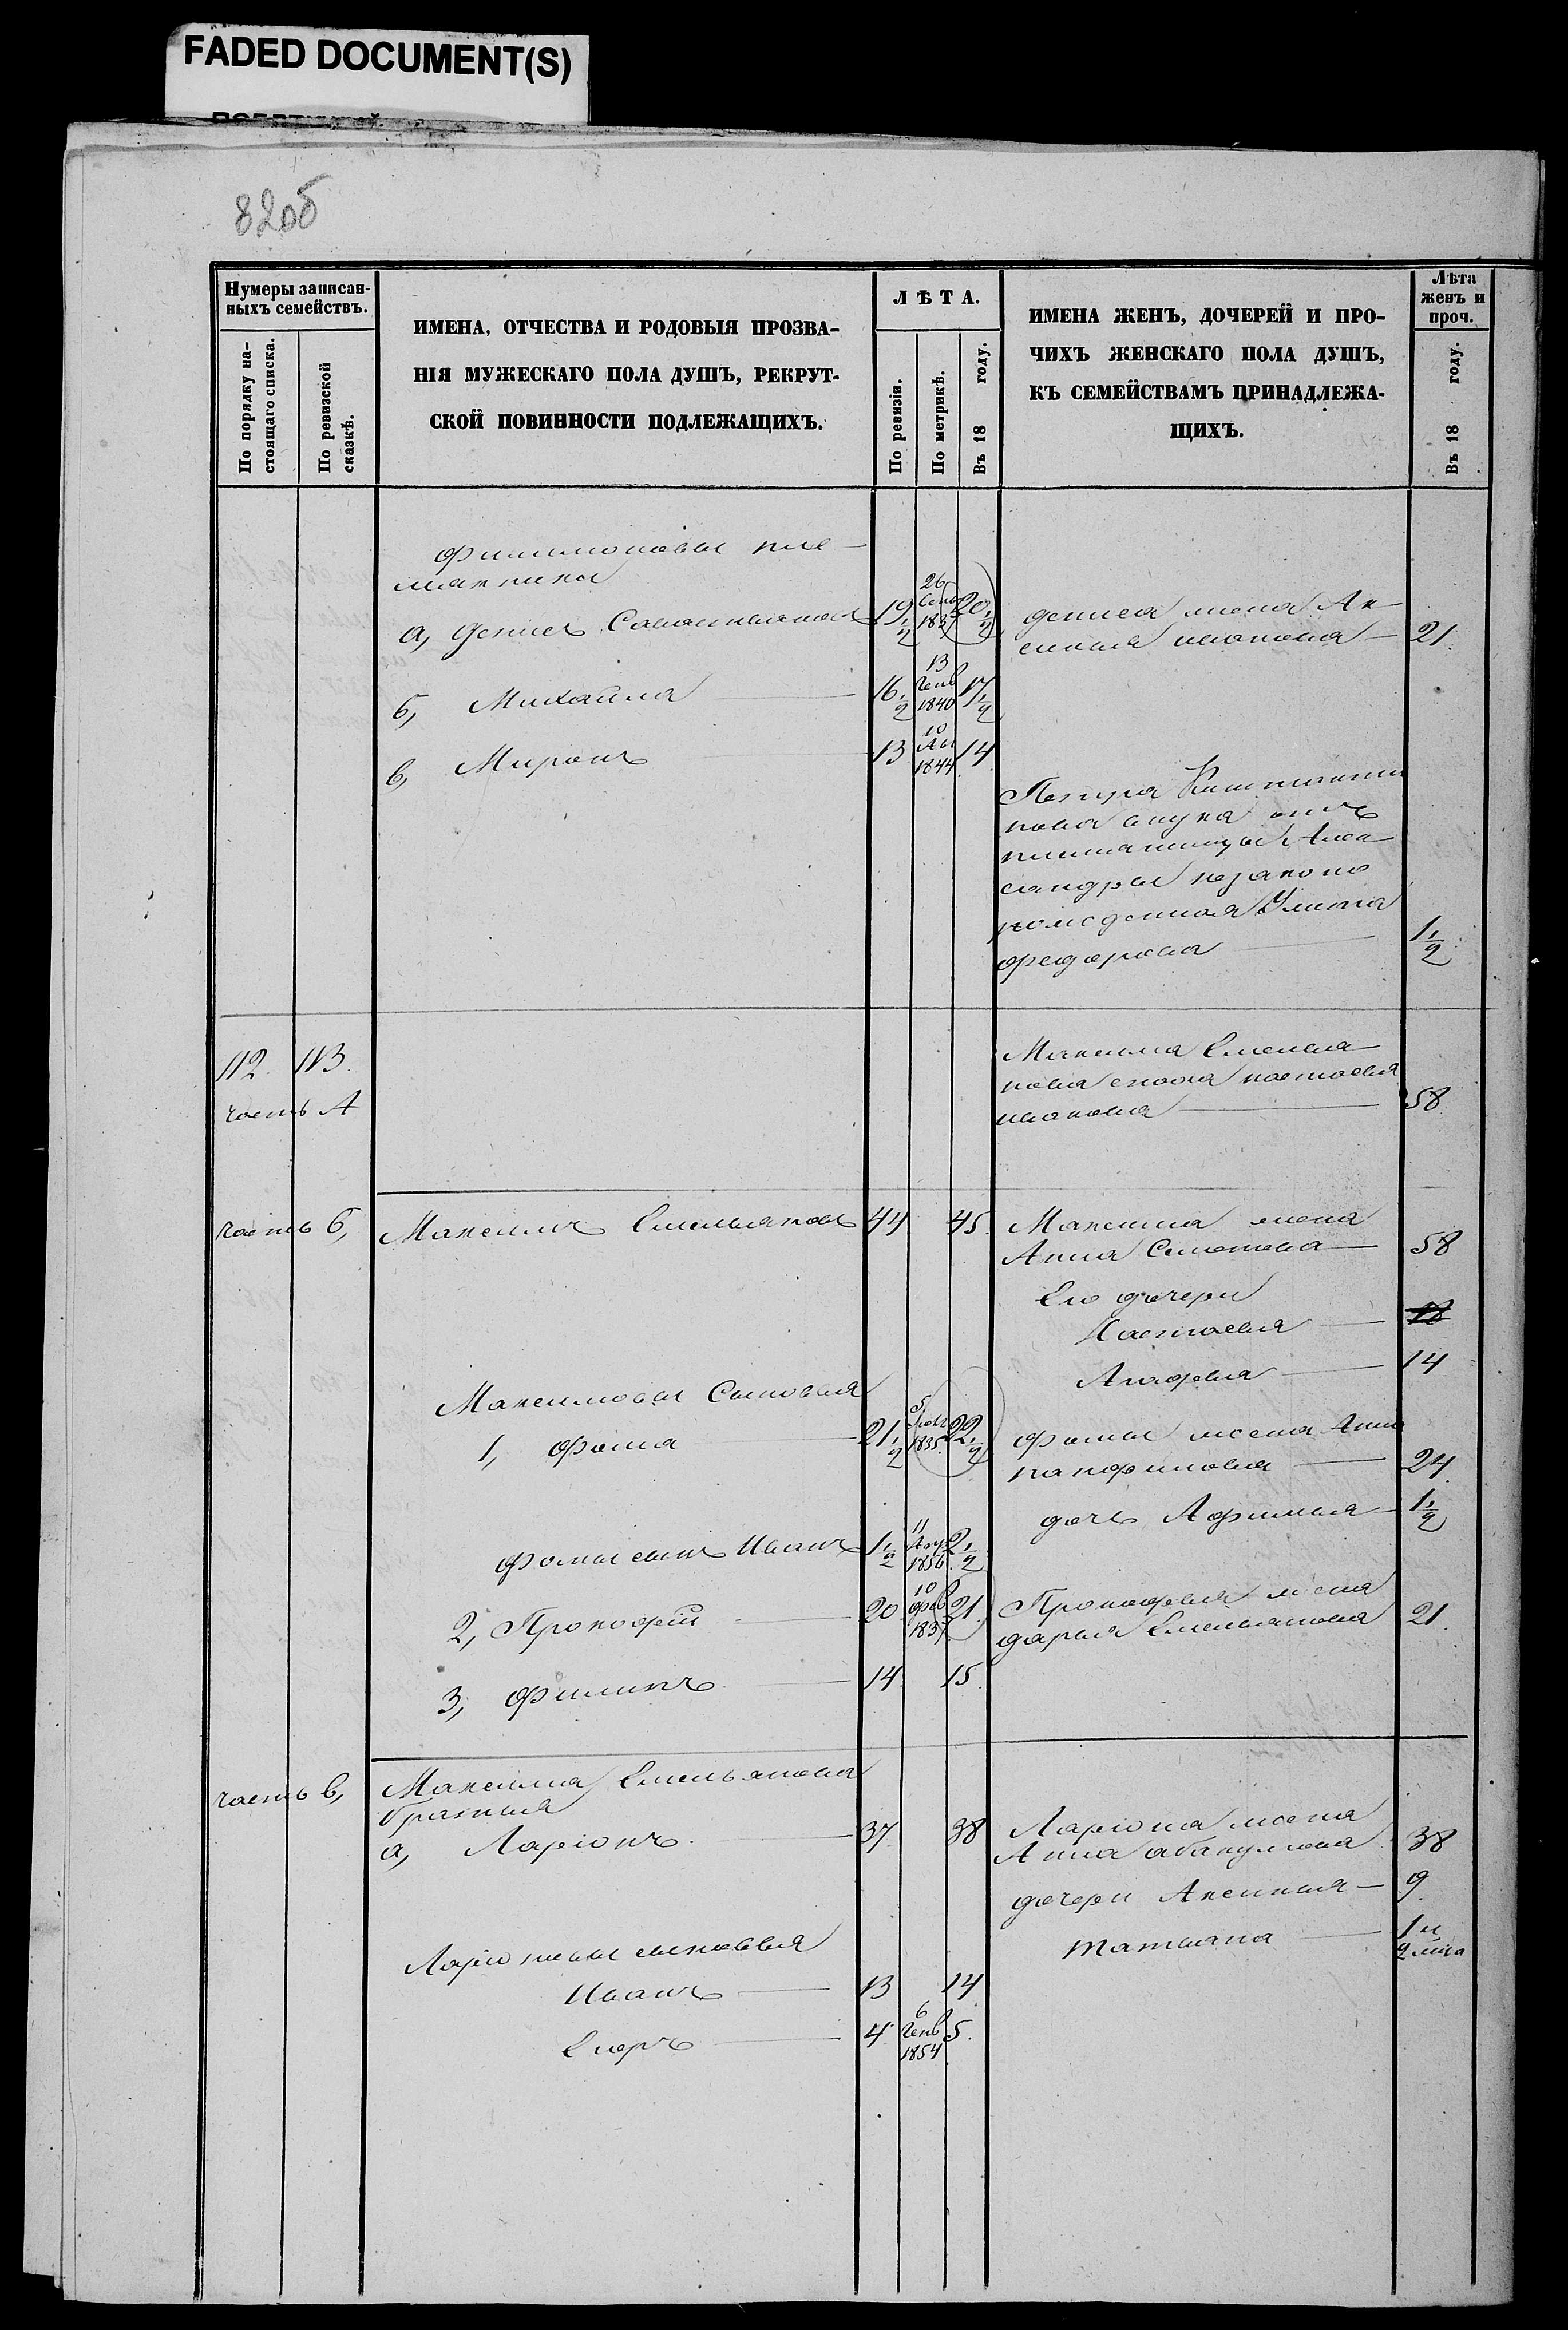 FADED DOCUMENT(S)
82об
Нумеры записан-
ныхъ семействъ.
По порядку на-
стоящаго списка.
По ревизской
сказкѣ.
ИМЕНА, ОТЧЕСТВА И РОДОВЫЯ ПРОЗВА-
НІЯ МУЖЕСКАГО ПОЛА ДУШЪ, РЕКРУТ-
СКОЙ ПОВИННОСТИ ПОДЛЕЖАЩИХЪ.
ЛѢТА.
По ревизіи.
По метрикѣ.
Въ 18 году.
ИМЕНА ЖЕНЪ, ДОЧЕРЕЙ И ПРО-
ЧИХЪ ЖЕНСКАГО ПОЛА ДУШЪ,
КЪ СЕМЕЙСТВАМЪ ПРИНАДЛЕЖА-
ЩИХЪ.
Лѣта
женъ и
проч.
Въ 18 году.
Филимоновы пле-
мянники
а, Денисъ 19 1/2 26 Сен 1837 20 1/2
Дениса жена Ак-
синья Иванова — 21.
б, Михайла 16 1/2 13 Генв 1840 17 1/2
в, Миронъ 13 10 1844 14
Петра
нова внука отъ
племянницы Алек-
сандры незаконно
рожденная Улита
Федорова 1 1/2
112. 113.
часть А
Максима Емелья-
нова сноха Настасья
Иванова 58
часть б, Максимъ Емельяновъ 44 45.
Максима жена
Анна Семенова — 58
Его дочери
Настасья 18
Агафья 14
Максимовы Сыновья
1, Фома 21 1/2 5 1835. 22 1/2
Фомы жена Анна
Панфилова 24.
дочь Афимья 1 1/2
Фомы сынъ Иванъ 1 1/2 11 1856 2 1/2
2, Прокофій 20 10 Фев 1837 21
Прокофья жена
Дарья Емельянова 21.
3, Филипъ 14 15.
часть в, Максима Емельянова
братья
а, Ларіонъ. 37 38
Ларіона жена
Анна Абакумова 38
дочери Аксинья — 9.
Татьяна 1 м
Ларіоновы сыновья
Иванъ 13 14
Егоръ 4 6 Генв 1854 5.